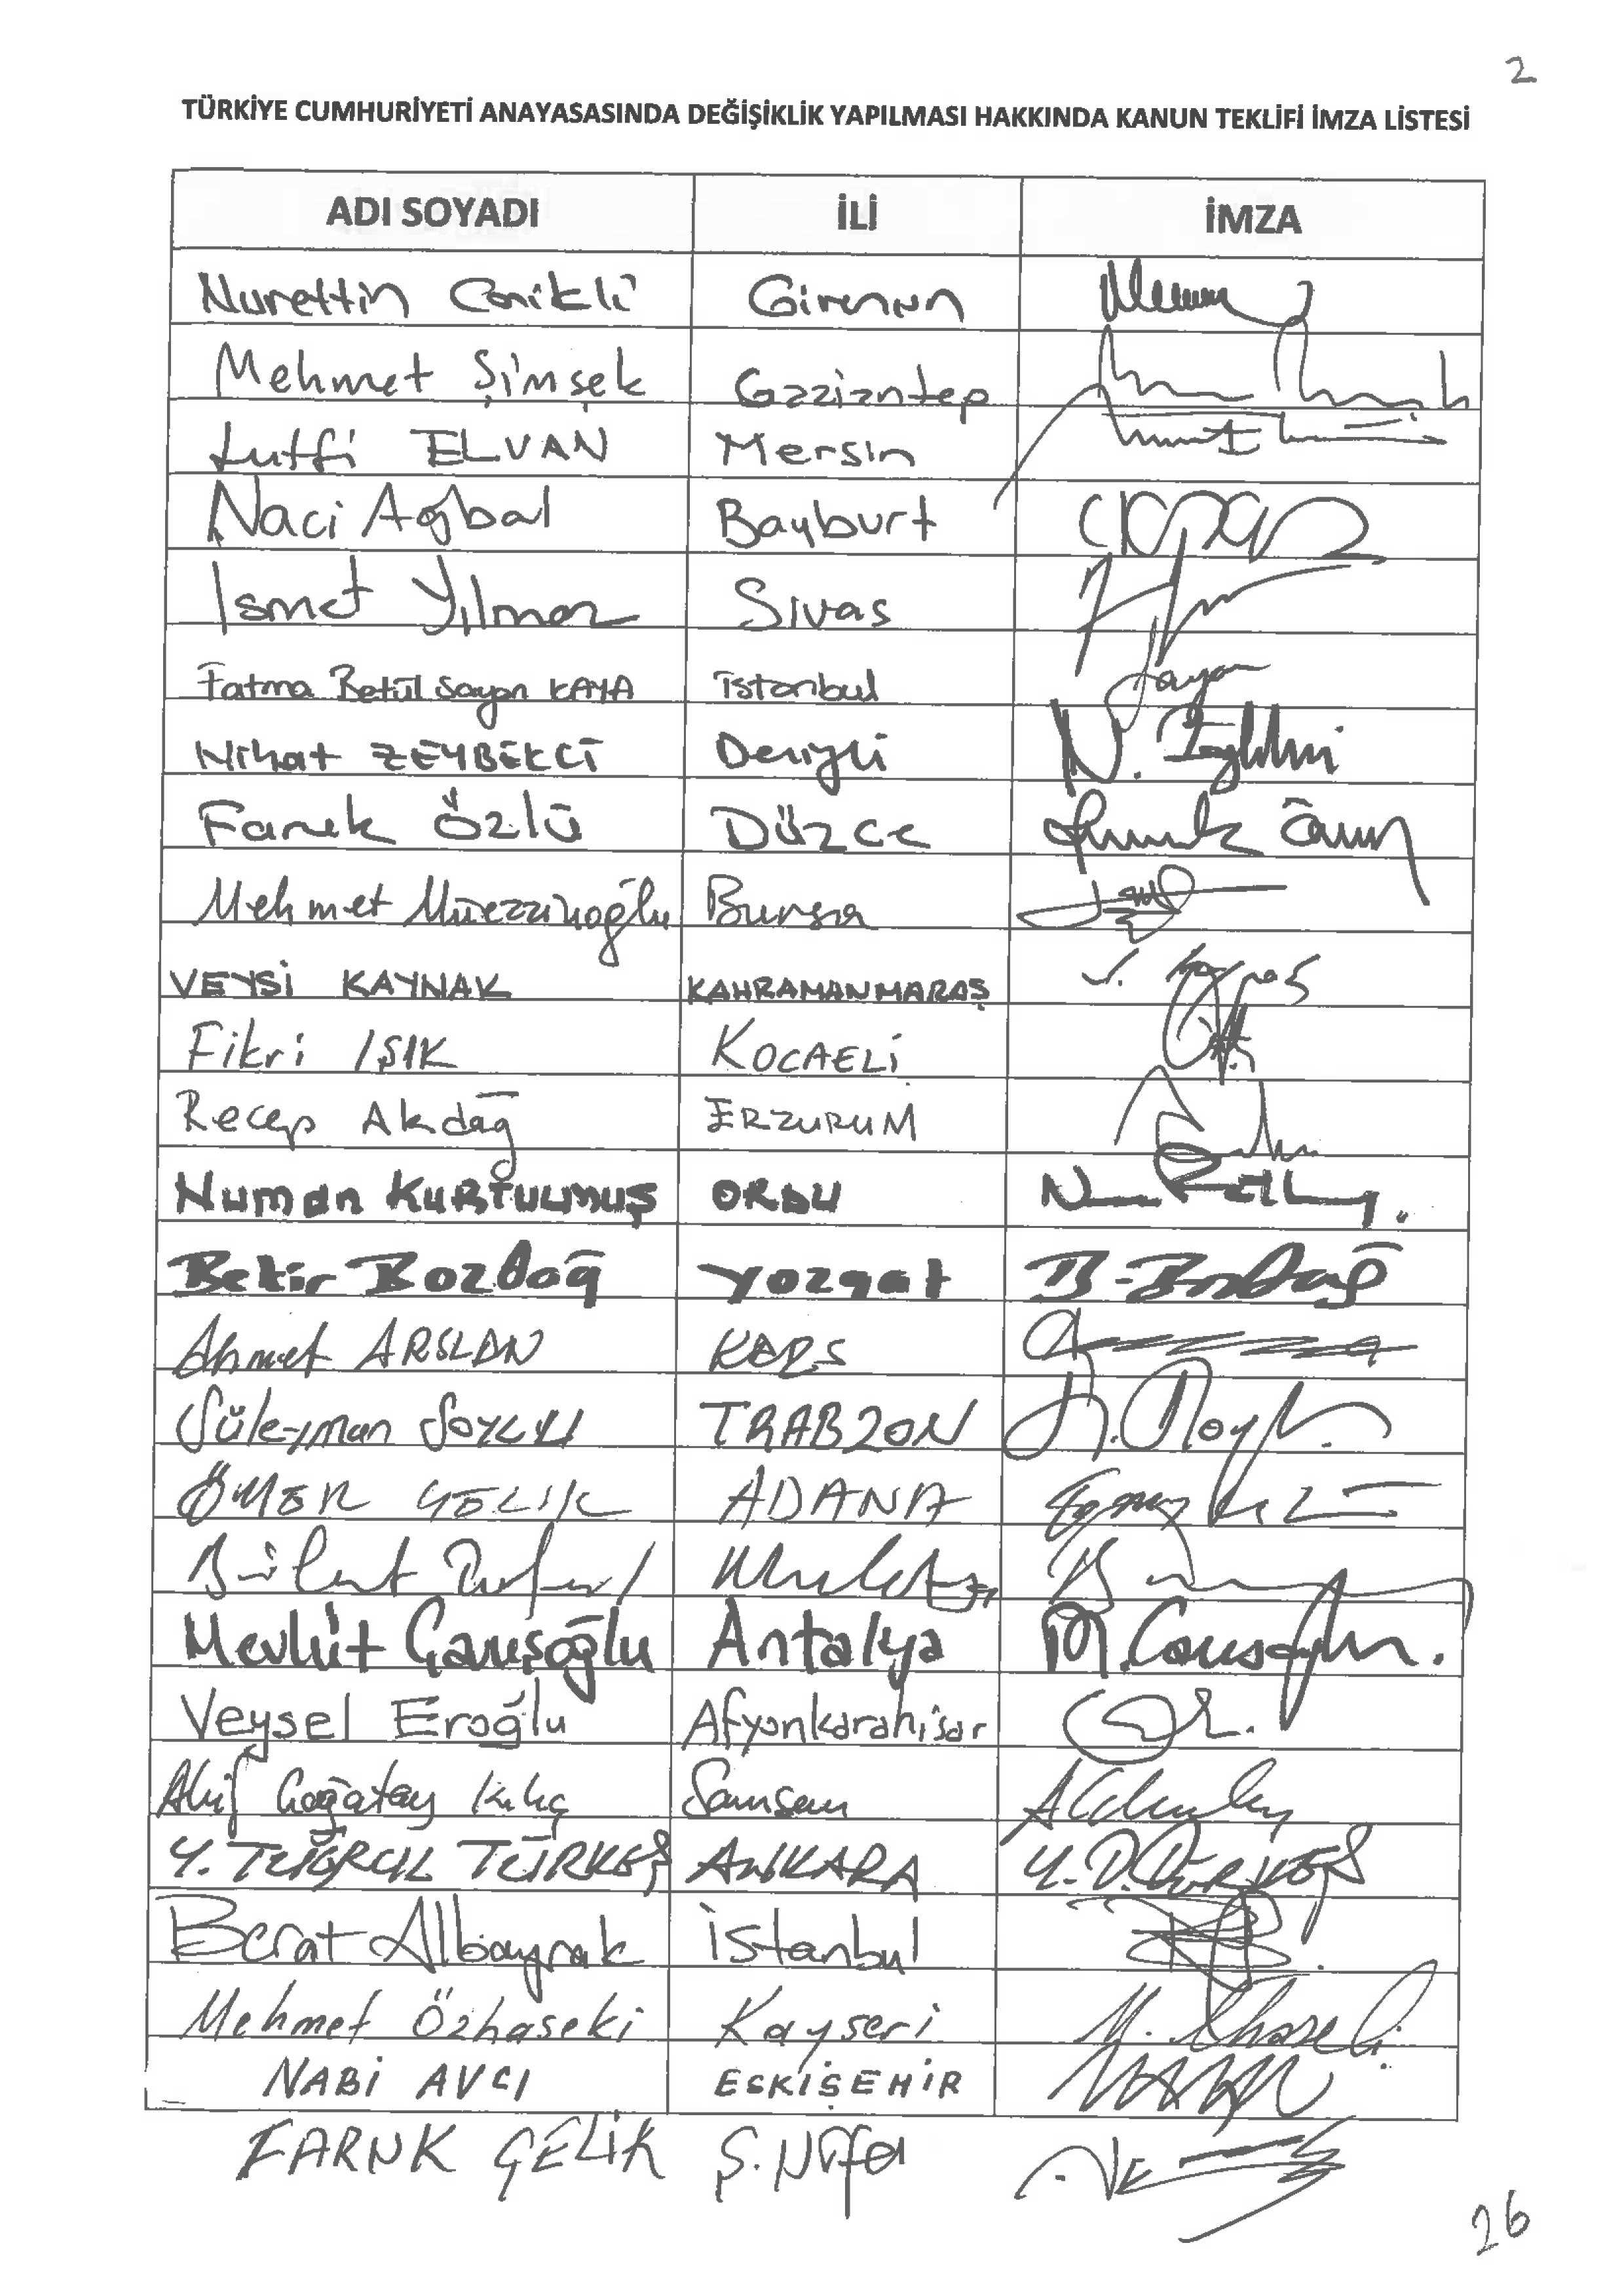 2
TÜRKİYE CUMHURİYETİ ANAYASASINDA DEĞİŞİKLİK YAPILMASI HAKKINDA KANUN TEKLİFİ İMZA LİSTESİ
ADI SOYADI İLİ İMZA
Nurettin Canikli Giresun
Mehmet Şimşek Gaziantep
Lutfi ELVAN Mersin
Naci Ağbal Bayburt
Ismet Yılmaz Sivas
Fatma Betül Sayan KAYA istanbul
Nihat ZEYBEKCİ Denizli
Faruk Özlü Düzce
Mehmet Müezzinoğlu Bursa
VEYSİ KAYNAK KAHRAMANMARAŞ
Fikri IŞIK KOCAELİ
Recep Akdağ ERZURUM
Numan KURTULMUŞ ORDU
Bekir Bozdağ Yozgat B. Bozdağ
Ahmet ARSLAN KARS
Süleyman SOYLU TRABZON
ÖMER ÇELİK ADANA
Bülent
Mevlüt Çavuşoğlu Antalya M. Cavusoglu.
Veysel Eroğlu Afyonkarahisar
Akif Çağatay Kılıç Samsun
Y. TUĞRUL TÜRKEŞ ANKARA
Berat Albayrak İstanbul
Mehmet Özhaseki Kayseri
NABİ AVCI ESKİŞEHİR
FARUK ÇELİK Ş.Urfa
26